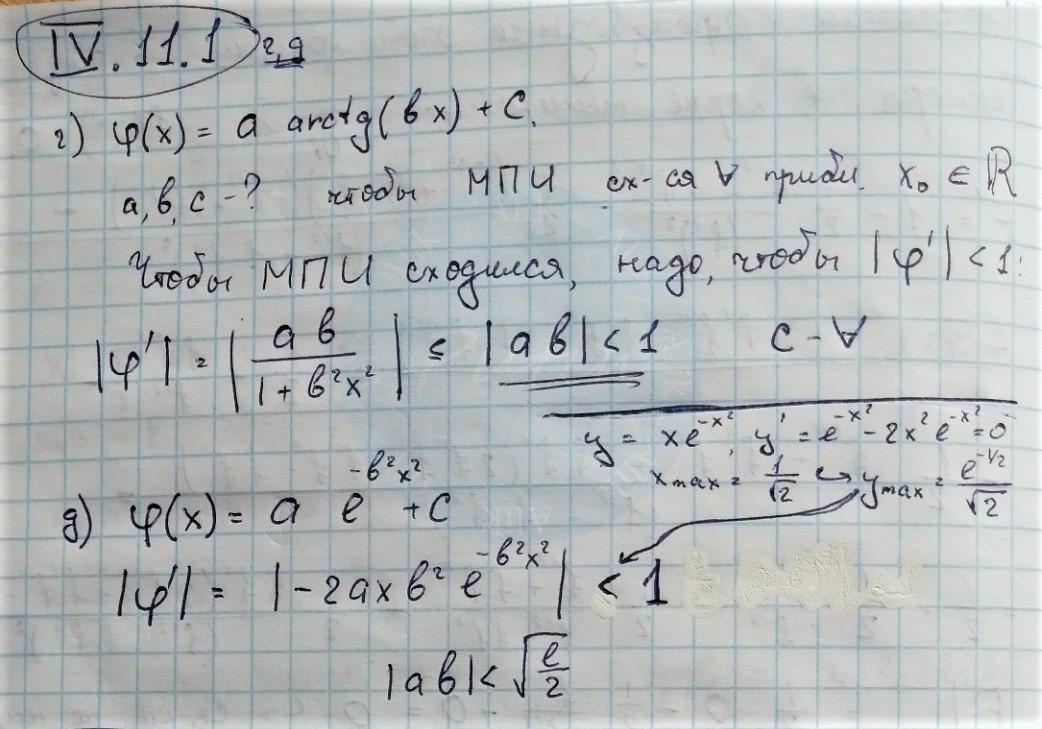 IV. 11.1 г, д
г) φ(x) = a arctg(bx) + C.
a, b, c - ? чтобы МПИ сх-ся ∀ прибл. x₀ ∈ ℝ
Чтобы МПИ сходился, надо, чтобы |φ'| < 1:
|φ'| = |ab / (1 + b²x²)| ≤ |ab| < 1 C - ∀
y = xe^(-x²), y' = e^(-x²) - 2x² e^(-x²) = 0
x max = 1/√2 ↪ y max = e^(-1/2)/√2
д) φ(x) = a e^(-b²x²) + C
|φ'| = |-2axb² e^(-b²x²)| < 1
|ab| < √(e/2)